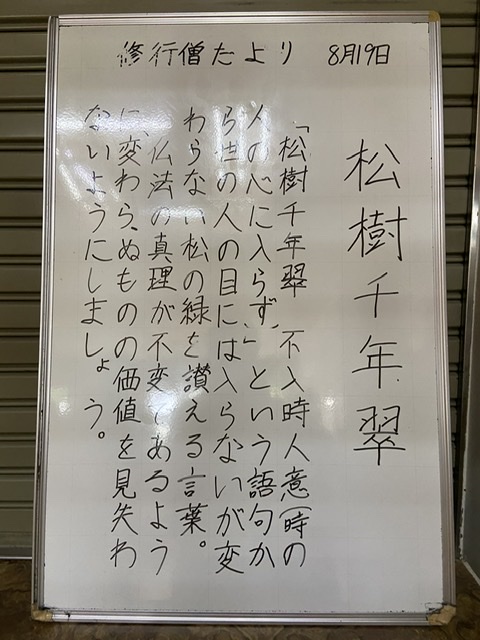 修行僧たより 8月19日
松樹千年翠
「松樹千年翠 不入時人意(時の
人の心に入らず)」という語句か
ら世の人の目には入らないが変
わらない松の緑を讃える言葉。
仏法の真理が不変であるよう
に、変わらぬものの価値を見失わ
ないようにしましょう。